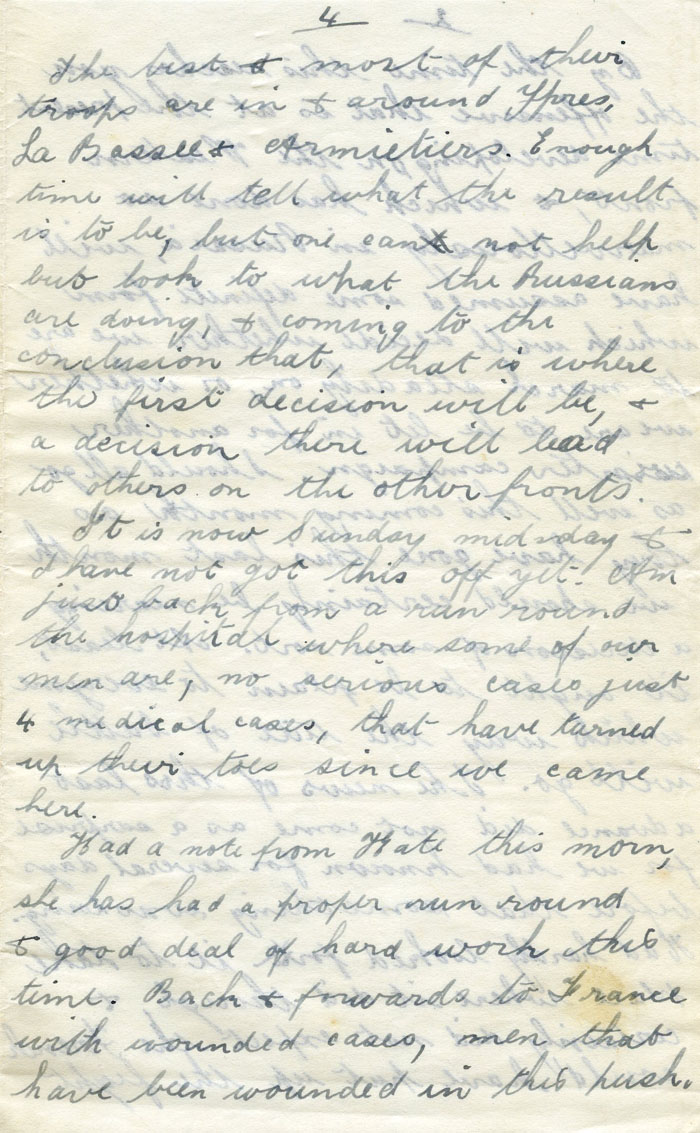 4
The best & most of their
troops are in & around Ypres,
La Bassee & Armietiers. Enough
time will tell what the result
is to be, but one can not help
but look to what the Russians
are doing, & coming to the
conclusion that, that is where
the first decision will be, &
a decision there will lead
to others on the other fronts.
It is now Sunday mid-day &
I have not got this off yet. Am
just back from a run round
the hospital where some of our
men are, no serious cases just
4 medical cases, that have turned
up their toes since we came
here.
Had a note from Kate this morn,
she has had a proper run round
& good deal of hard work this
time. Back & forwards to France
with wounded cases, men that
have been wounded in this push.